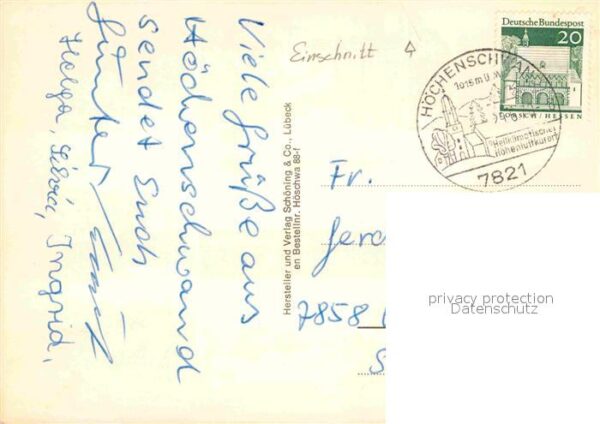 Viele Grüße aus
Höchenschwand
sendet Euch
Günter
Helga, Silvia, Ingrid.
Einschnitt
Hersteller und Verlag Schöning & Co., Lübeck
en Bestellnr. Höschwa 88-f
Deutsche Bundespost
20
LORSCH / HESSEN
HÖCHENSCHWAND
1015 m ü. M.
Heilklimatischer
Höhenluftkurort
7821
Fr.
7858
privacy protection
Datenschutz